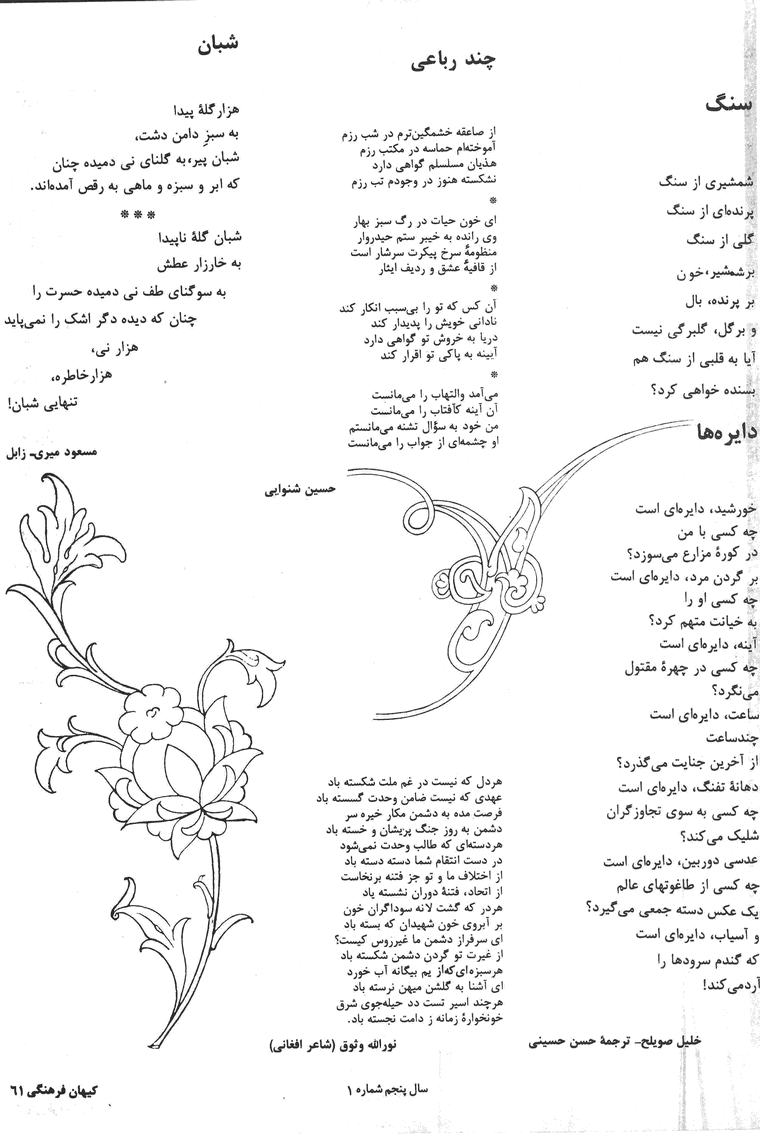 سنگ
شمشیری از سنگ
پرنده‌ای از سنگ
گلی از سنگ
بر شمشیر، خون
بر پرنده، بال
و برگل، گلبرگی نیست
آیا به قلبی از سنگ هم
بسنده خواهی کرد؟
دایره‌ها
خورشید، دایره‌ای است
چه کسی با من
در کورهٔ مزارع می‌سوزد؟
بر گردن مرد، دایره‌ای است
چه کسی او را
به خیانت متهم کرد؟
آینه، دایره‌ای است
چه کسی در چهرهٔ مقتول
می‌نگرد؟
ساعت، دایره‌ای است
چندساعت
از آخرین جنایت می‌گذرد؟
دهانهٔ تفنگ، دایره‌ای است
چه کسی به سوی تجاوزگران
شلیک می‌کند؟
عدسی دوربین، دایره‌ای است
چه کسی از طاغوتهای عالم
یک عکس دسته جمعی می‌گیرد؟
و آسیاب، دایره‌ای است
که گندم سرودها را
آردمی‌کند!
خلیل صویلح- ترجمهٔ حسن حسینی
چند رباعی
از صاعقه خشمگین‌ترم در شب رزم
آموخته‌ام حماسه در مکتب رزم
هذیان مسلسلم گواهی دارد
نشکسته هنوز در وجودم تب رزم
*
ای خون حیات در رگ سبز بهار
وی رانده به خیبر ستم حیدروار
منظومهٔ سرخ پیکرت سرشار است
از قافیهٔ عشق و ردیف ایثار
*
آن کس که تو را بی‌سبب انکار کند
نادانی خویش را پدیدار کند
دریا به خروش تو گواهی دارد
آیینه به پاکی تو اقرار کند
*
می‌آمد والتهاب را می‌مانست
آن آینه کآفتاب را می‌مانست
من خود به سؤال تشنه می‌مانستم
او چشمه‌ای از جواب را می‌مانست
حسین شنوایی
هردل که نیست در غم ملت شکسته باد
عهدی که نیست ضامن وحدت گسسته باد
فرصت مده به دشمن مکار خیره سر
دشمن به روز جنگ پریشان و خسته باد
هردسته‌ای که طالب وحدت نمی‌شود
در دست انتقام شما دسته دسته باد
از اختلاف ما و تو جز فتنه برنخاست
از اتحاد، فتنهٔ دوران نشسته باد
هردر که گشت لانه سوداگران خون
بر آبروی خون شهیدان که بسته باد
ای سرفراز دشمن ما غیرروس کیست؟
از غیرت تو گردن دشمن شکسته باد
هرسبزه‌ای که از یم بیگانه آب خورد
ای آشنا به گلشن میهن نرسته باد
هرچند اسیر تست دد حیله‌جوی شرق
خونخوارهٔ زمانه ز دامت نجسته باد.
نورالله وثوق (شاعر افغانی)
شبان
هزار گلهٔ پیدا
به سبزِ دامن دشت،
شبان پیر،به گلنای نی دمیده چنان
که ابر و سبزه و ماهی به رقص آمده‌اند.
***
شبان گلهٔ ناپیدا
به خارزار عطش
به سوگنای طف نی دمیده حسرت را
چنان که دیده دگر اشک را نمی‌پاید
هزار نی،
هزارخاطره،
تنهایی شبان!
مسعود میری- زابل
سال پنجم شماره ۱
کیهان فرهنگی ۶۱